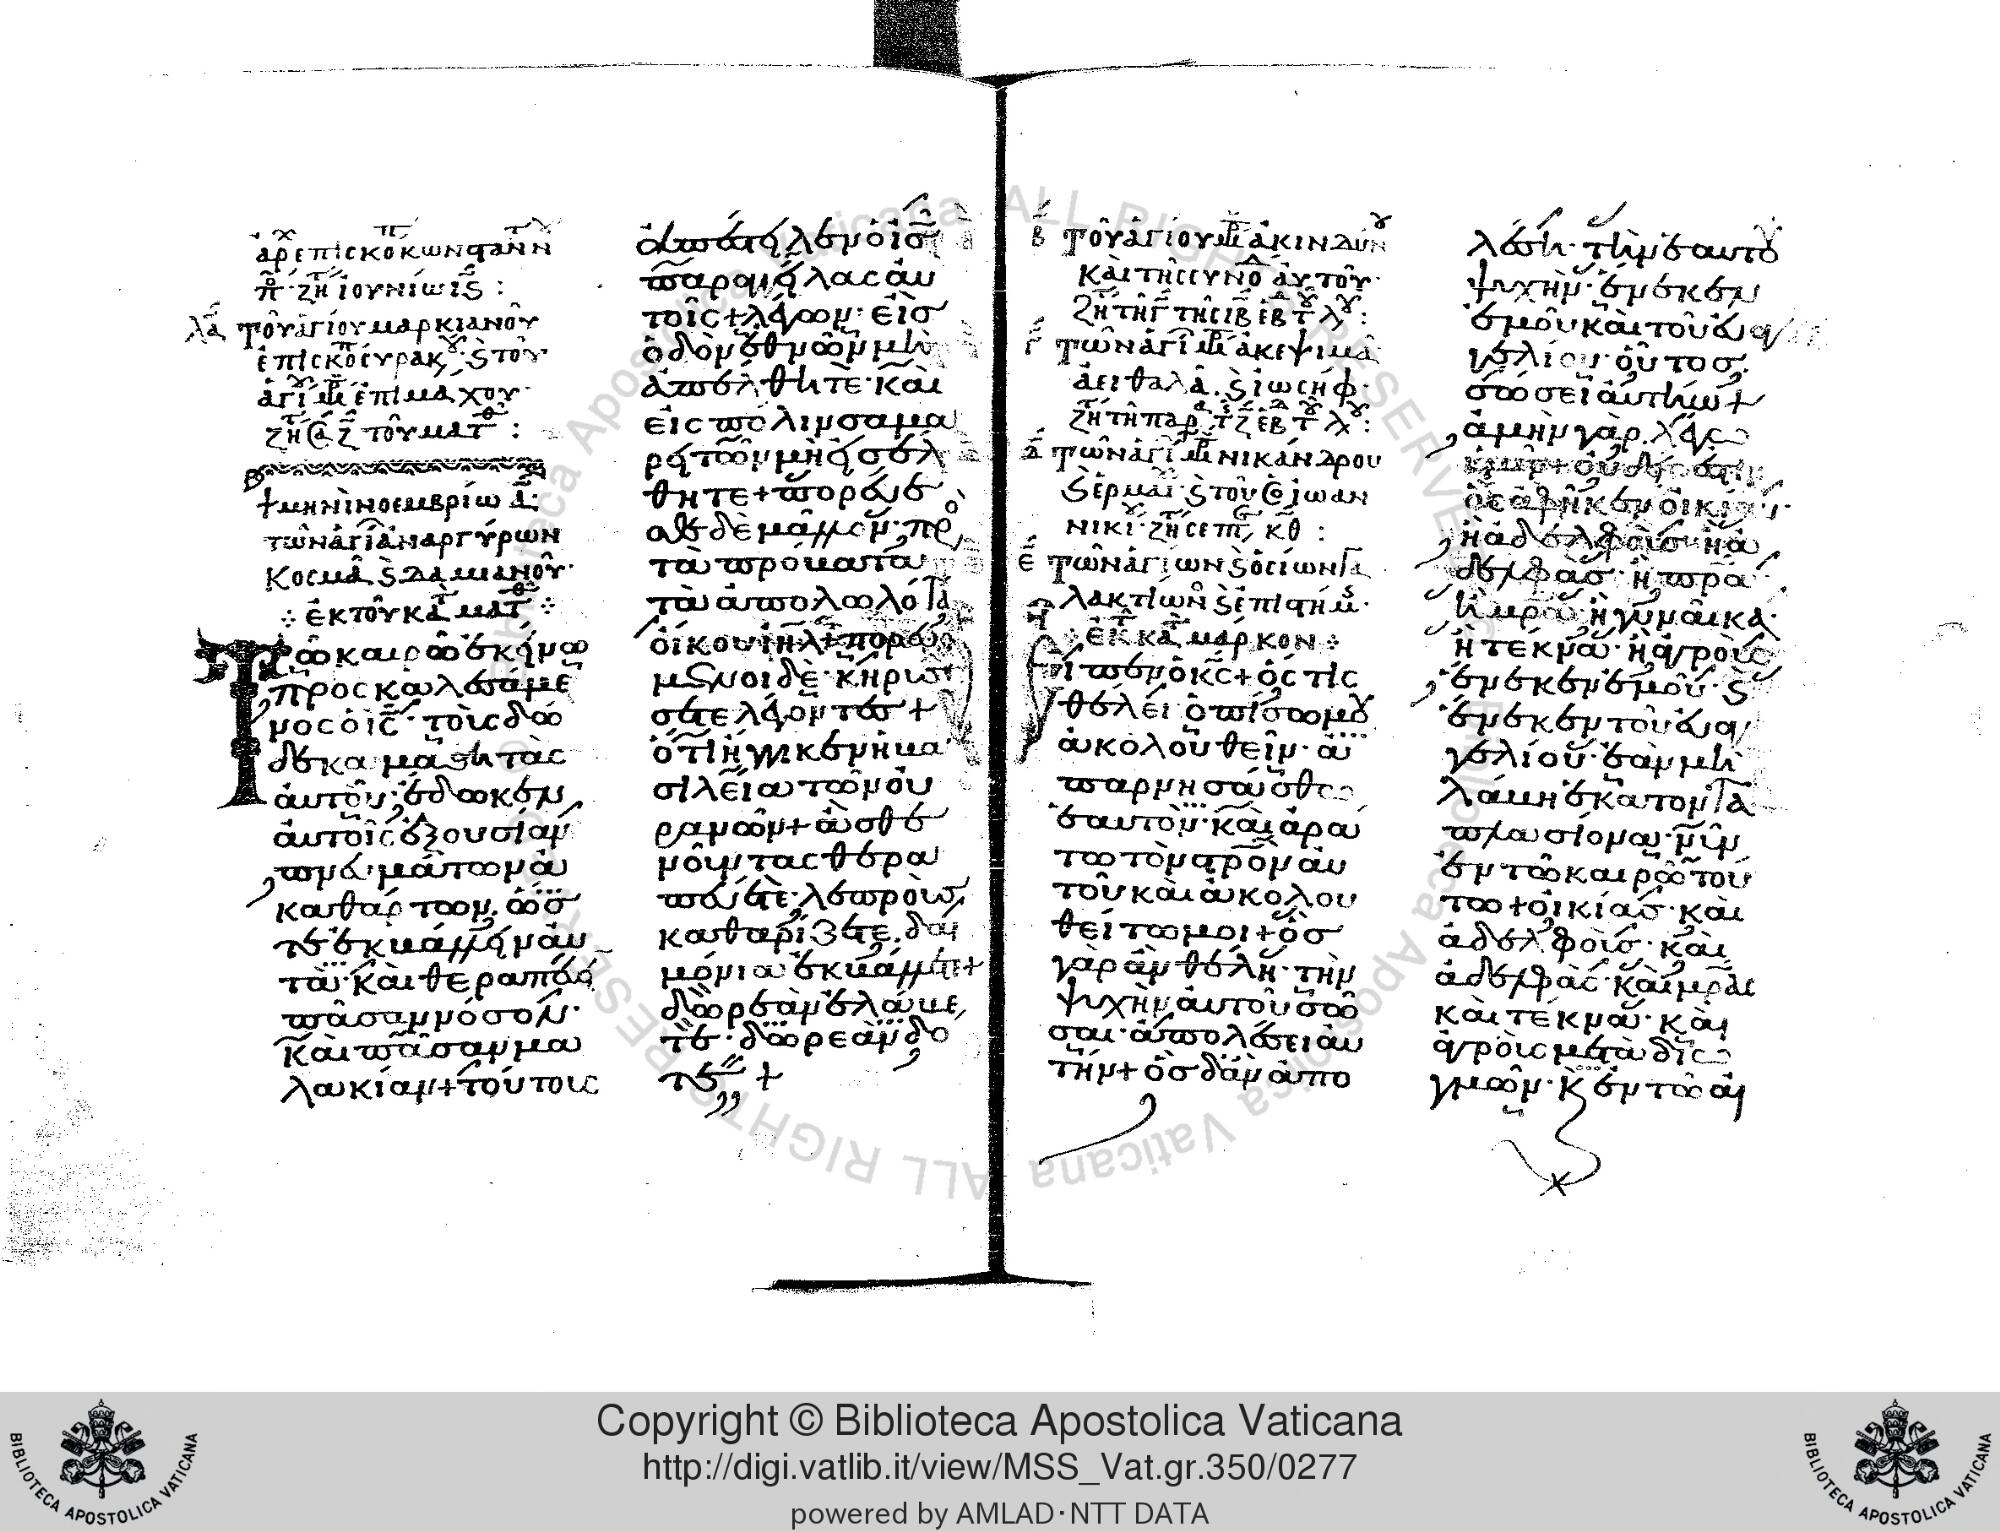 ἀρχεπισκό Κωνσταντιν
ζητει ἰουνίω ις :
λα τοῦ ἁγίου μαρκιανοῦ
ἐπισκό συρακ ς τοῦ
ἁγί μρ ἐπιμάχου
ζητ τοῦ ματθ :
+ μηνὶ νοεμβρίω α
τῶν ἁγί ἀναργύρων
κοσμᾶ ς δαμιανοῦ
ἐκ τοῦ κατ ματθ
Τῶ καιρῶ ἐκείνω
προσκαλεσάμε
νος ὁ ις τοὺς δώ
δεκα μαθητὰς
αὐτοῦ ἔδωκεν
αὐτοῖς ἐξουσίαν
πνατων ἀ
καθάρτων ὥσ
τε ἐκβάλλειν αὐ
τὰ καὶ θεραπεύειν
πᾶσαν νόσον
καὶ πᾶσαν μα
λακίαν + τούτους
ἀπέστειλεν ὁ ις
παραγγείλας αὐ
τοῖς + λέγων εἰς
ὁδὸν ἐθνῶν μὴ
ἀπέλθητε καὶ
εἰς πόλιν σαμα
ρειτῶν μὴ εἰσέλ
θητε + πορεύεσ
θε δὲ μᾶλλον πρὸς
τὰ πρόβατα
τὰ ἀπολωλότα
οἴκου ιηλ + πορευό
μενοι δὲ κηρύσ
σετε λέγοντες +
ὅτι ἤγγικεν ἡ βα
σιλεία τῶν οὐ
ρανῶν + ἀσθε
νοῦντας θερα
πεύετε λεπροὺς
καθαρίζετε δαι
μόνια ἐκβάλλετε +
δωρεὰν ἐλάβε
τε δωρεὰν δό
τε +
β τοῦ ἁγίου μρ ἀκινδύν
καὶ τῆς συνοδ αὐτοῦ
ζητ τῆ γ τῆς ιβ εβδ τ λου :
γ τῶν ἁγί μρ ἀκεψιμᾶ
ἀειθαλᾶ ς ἰωσήφ
ζητ τῆ παρ τ ζ εβδ τ λου :
δ τῶν ἁγί μρ νικάνδρου
ς ἑρμαί ς τοῦ ὁσ ἰωαν
νικί ζητ σεπτ κθ :
ε τῶν ἁγίων ς ὁσίων γα
λακτίων ς ἐπιστήμ
ἐκ κατ μάρκον
εἶπεν ὁ κς + ὅστις
θέλει ὀπίσω μου
ἀκολουθεῖν ἀ
παρνησάσθω
ἑαυτὸν καὶ ἀρά
τω τὸν σταυρὸν αὐ
τοῦ καὶ ἀκολου
θείτω μοι + ὃς
γὰρ ἂν θέλη τὴν
ψυχὴν αὐτοῦ σῶ
σαι ἀπολέσει αὐ
τήν + ὃς δ' ἂν ἀπο
λέση τὴν ἑαυτοῦ
ψυχὴν ἕνεκεν
ἐμοῦ καὶ τοῦ εὐαγ
γελίου οὗτος
σώσει αὐτήν +
ἀμὴν γὰρ λέγω
ὑμῖν + οὐδείς ἐστιν
ὃς ἀφῆκεν οἰκίαν
ἢ ἀδελφοὺς ἢ ἀ
δελφὰς ἢ πρα
ἢ μρα ἢ γυναῖκα
ἢ τέκνα ἢ ἀγροὺς
ἕνεκεν ἐμοῦ ς
ἕνεκεν τοῦ εὐαγ
γελίου ἐὰν μὴ
λάβη ἑκατοντα
πλασίονα νῦν
ἐν τῶ καιρῶ τού
τω + οἰκίας καὶ
ἀδελφοὺς καὶ
ἀδελφὰς καὶ μρας
καὶ τέκνα καὶ
ἀγροὺς μετὰ διω
γμῶν κ ἐν τῶ αἰ
Copyright © Biblioteca Apostolica Vaticana
http://digi.vatlib.it/view/MSS_Vat.gr.350/0277
powered by AMLAD·NTT DATA
BIBLIOTECA APOSTOLICA VATICANA
BIBLIOTECA APOSTOLICA VATICANA